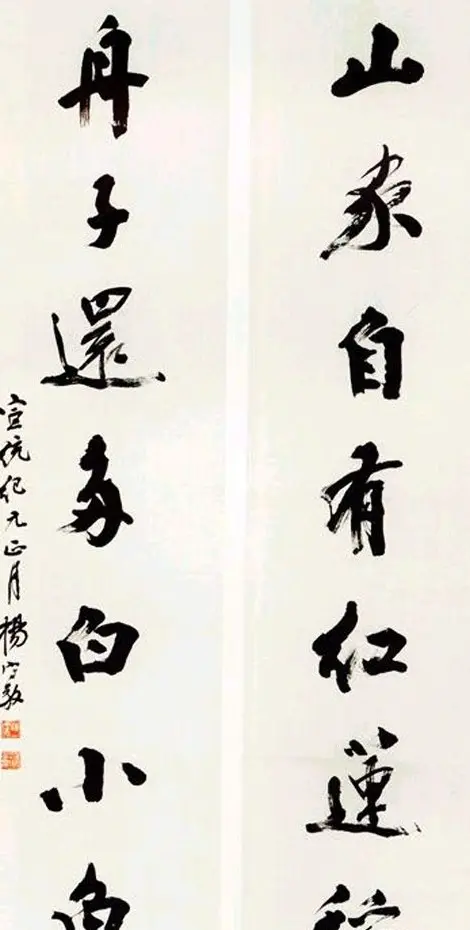 山家自有紅蓮
舟子還多白小魚
宣統紀元正月楊守敬